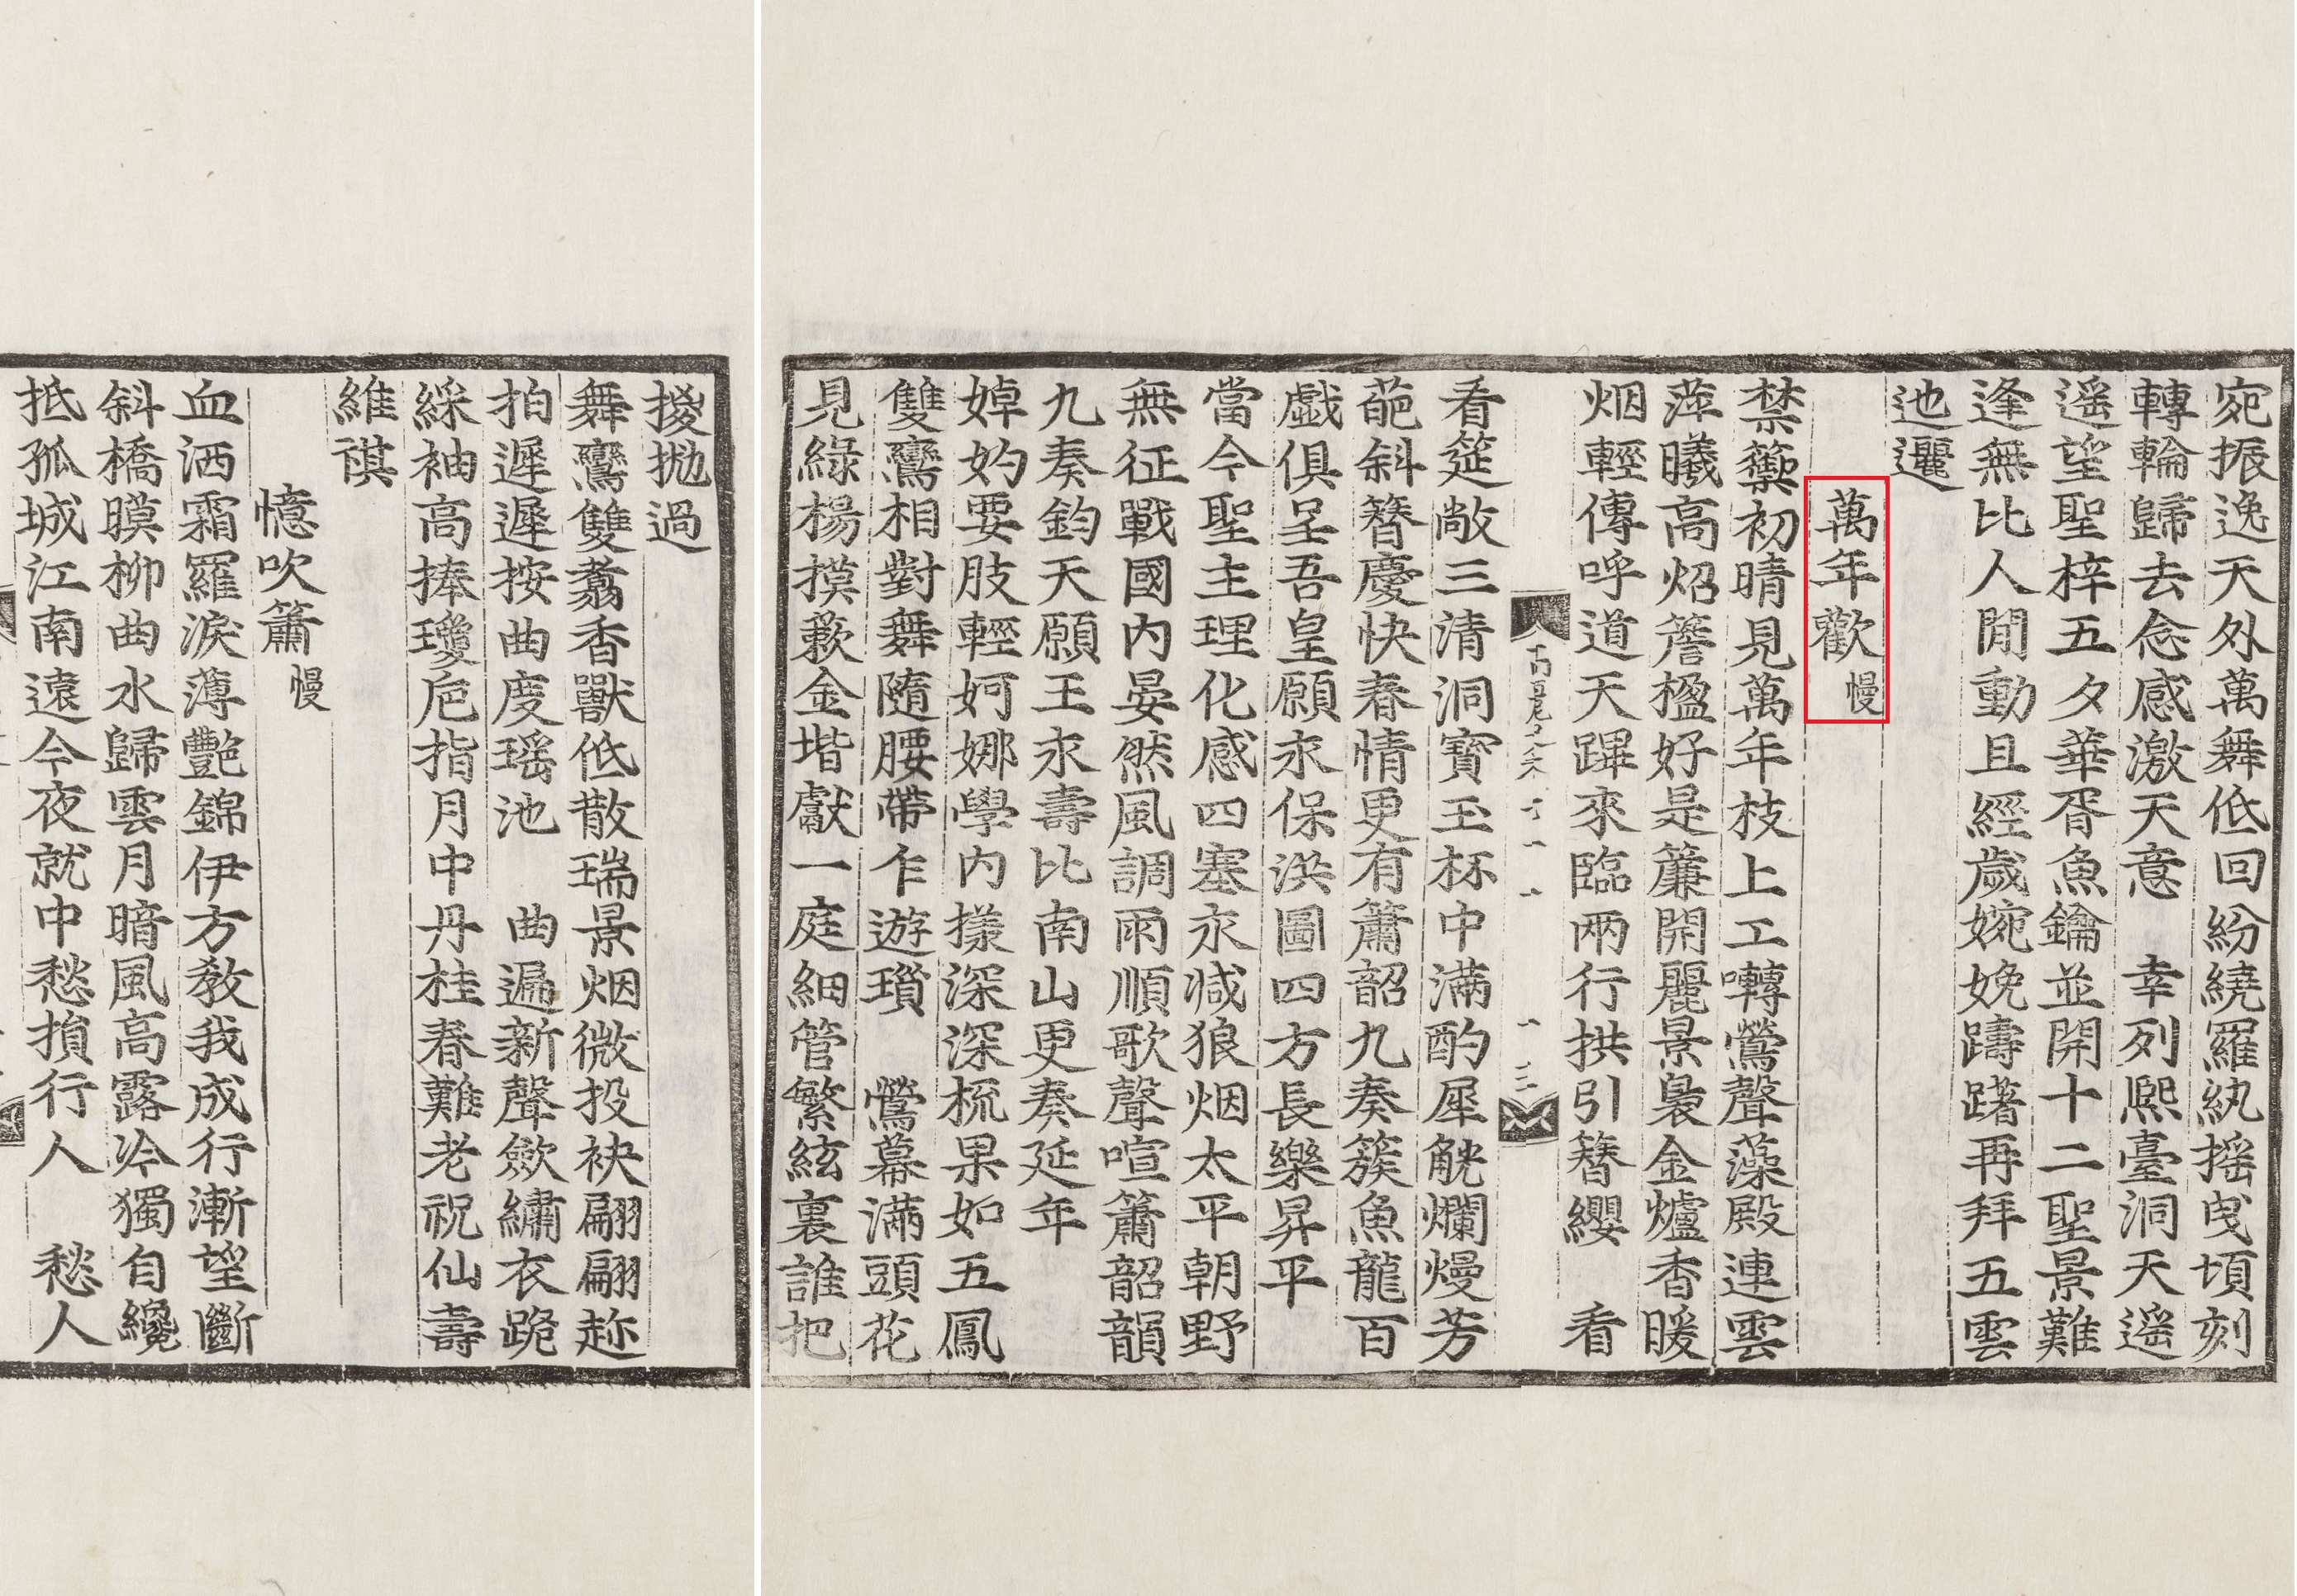 宛振逸天外萬舞低回紛繞羅紈摇曳頃刻
轉輪歸去念感激天意　幸列熙臺洞天遥
遥望聖梓五夕華胥魚鑰並開十二聖景難
逢無比人間動且經歲婉娩躊躇再拜五雲
迆邐
萬年歡慢
禁籞初晴見萬年枝上工囀鶯聲藻殿連雲
萍曦高炤簷楹好是簾開麗景裊金爐香暖
烟輕傳呼道天蹕來臨兩行拱引簪纓　看
看筵敞三清洞寳玉杯中滿酌犀觥爛熳芳
葩斜簪慶快春情更有簫韶九奏簇魚龍百
戯俱呈吾皇願永保洪圖四方長樂昇平
當今聖主理化感四塞永㓕狼烟太平朝野
無征戰國内晏然風調雨順歌聲喧簫韶韻
九奏鈞天願王永壽比南山更奏延年
婥妁要肢輕婀娜學内㨾深深梳果如五鳳
雙鸞相對舞隨腰帶乍遊瑣　鶯幕滿頭花
見綠楊摸蔌金堦獻一庭細管繁絃裏誰把
㨮抛過
舞鸞雙翥香獸低散瑞景烟微投袂翩翩趂
拍遲遲按曲度瑶池　曲遍新聲歛繡衣跪
綵袖高捧瓊巵指月中丹桂春難老祝仙壽
維祺
憶吹簫慢
血洒霜羅淚薄艶錦伊方教我成行漸望斷
斜橋暯柳曲水歸雲月暗風高露冷獨自纔
抵孤城江南遠今夜就中愁損行人　愁人